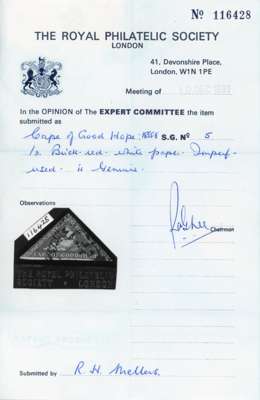 Nº 116428
THE ROYAL PHILATELIC SOCIETY
LONDON
41, Devonshire Place,
London. W1N 1PE
Meeting of
In the OPINION of The EXPERT COMMITTEE the item
submitted as
Cape of Good Hope: S.G. Nº 5
1d Brick-red - white paper - Imperf -
used - is Genuine.
Observations
116428
CAPE OF GOOD HOPE
THE ROYAL PHILATELIC
SOCIETY LONDON
Chairman
Submitted by R. H. Mellers.